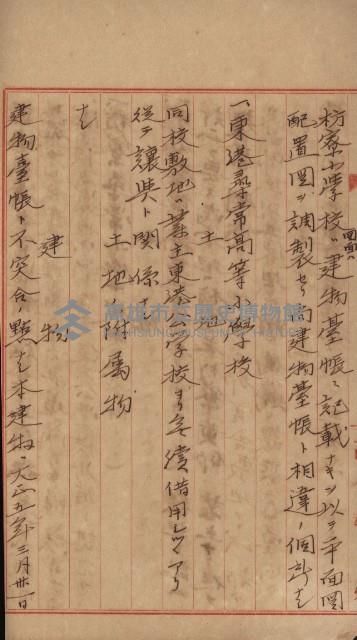 枋寮小學校ハ建物臺帳ニ記載ナキヲ以テ平面圖
圖面ハ
配置圖ヲ調製セリ尚建物臺帳ト相違ノ個所ナ
一、東港尋常高等小學校
土地
同校敷地ハ舊土東港公學校ヨリ無償借用シツヽアリ
從テ讓與ト關係ナシ
土地附屬物
ナシ
建物
建物臺帳ト不突合ノ點ナシ本建物ハ大正五年三月卅一日
高雄市立歷史博物館
KAOHSIUNG MUSEUM OF HISTORY